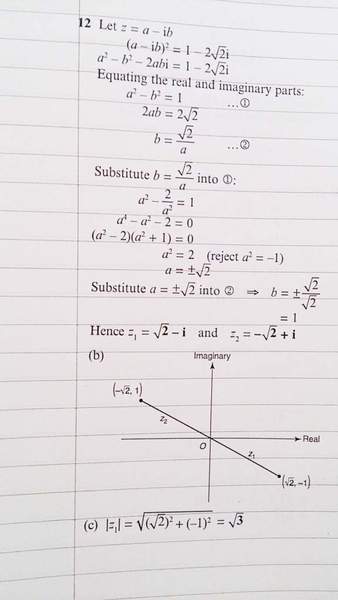 12 Let z = a – ib
(a – ib)² = 1 – 2√2i
a² – b² – 2abi = 1 – 2√2i
Equating the real and imaginary parts:
a² – b² = 1 ...①
2ab = 2√2
b = √2/a ...②
Substitute b = √2/a into ①:
a² – 2/a² = 1
a⁴ – a² – 2 = 0
(a² – 2)(a² + 1) = 0
a² = 2 (reject a² = –1)
a = ±√2
Substitute a = ±√2 into ② ⇒ b = ±√2/√2
= 1
Hence z₁ = √2 – i and z₂ = –√2 + i
(b)
Imaginary
(–√2, 1)
z₂
Real
O
z₁
(√2, –1)
(c) |z₁| = √((√2)² + (–1)²) = √3